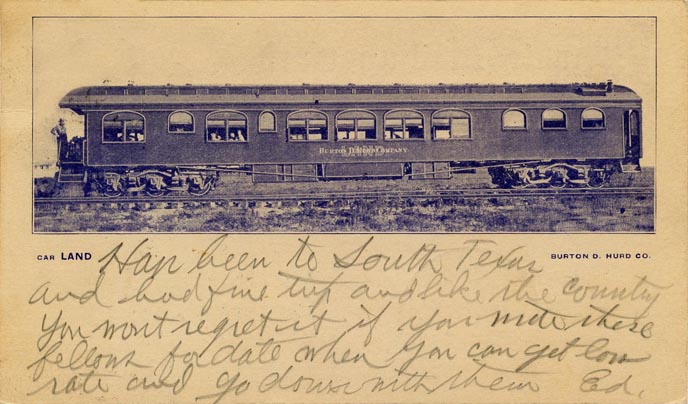 BURTON D. HURD COMPANY
CAR LAND
BURTON D. HURD CO.
Hap been to South Texas
and had fine trip and like the country
You wont regret it if you write these
fellows for date when you can get low
rate and go down with them Ed.